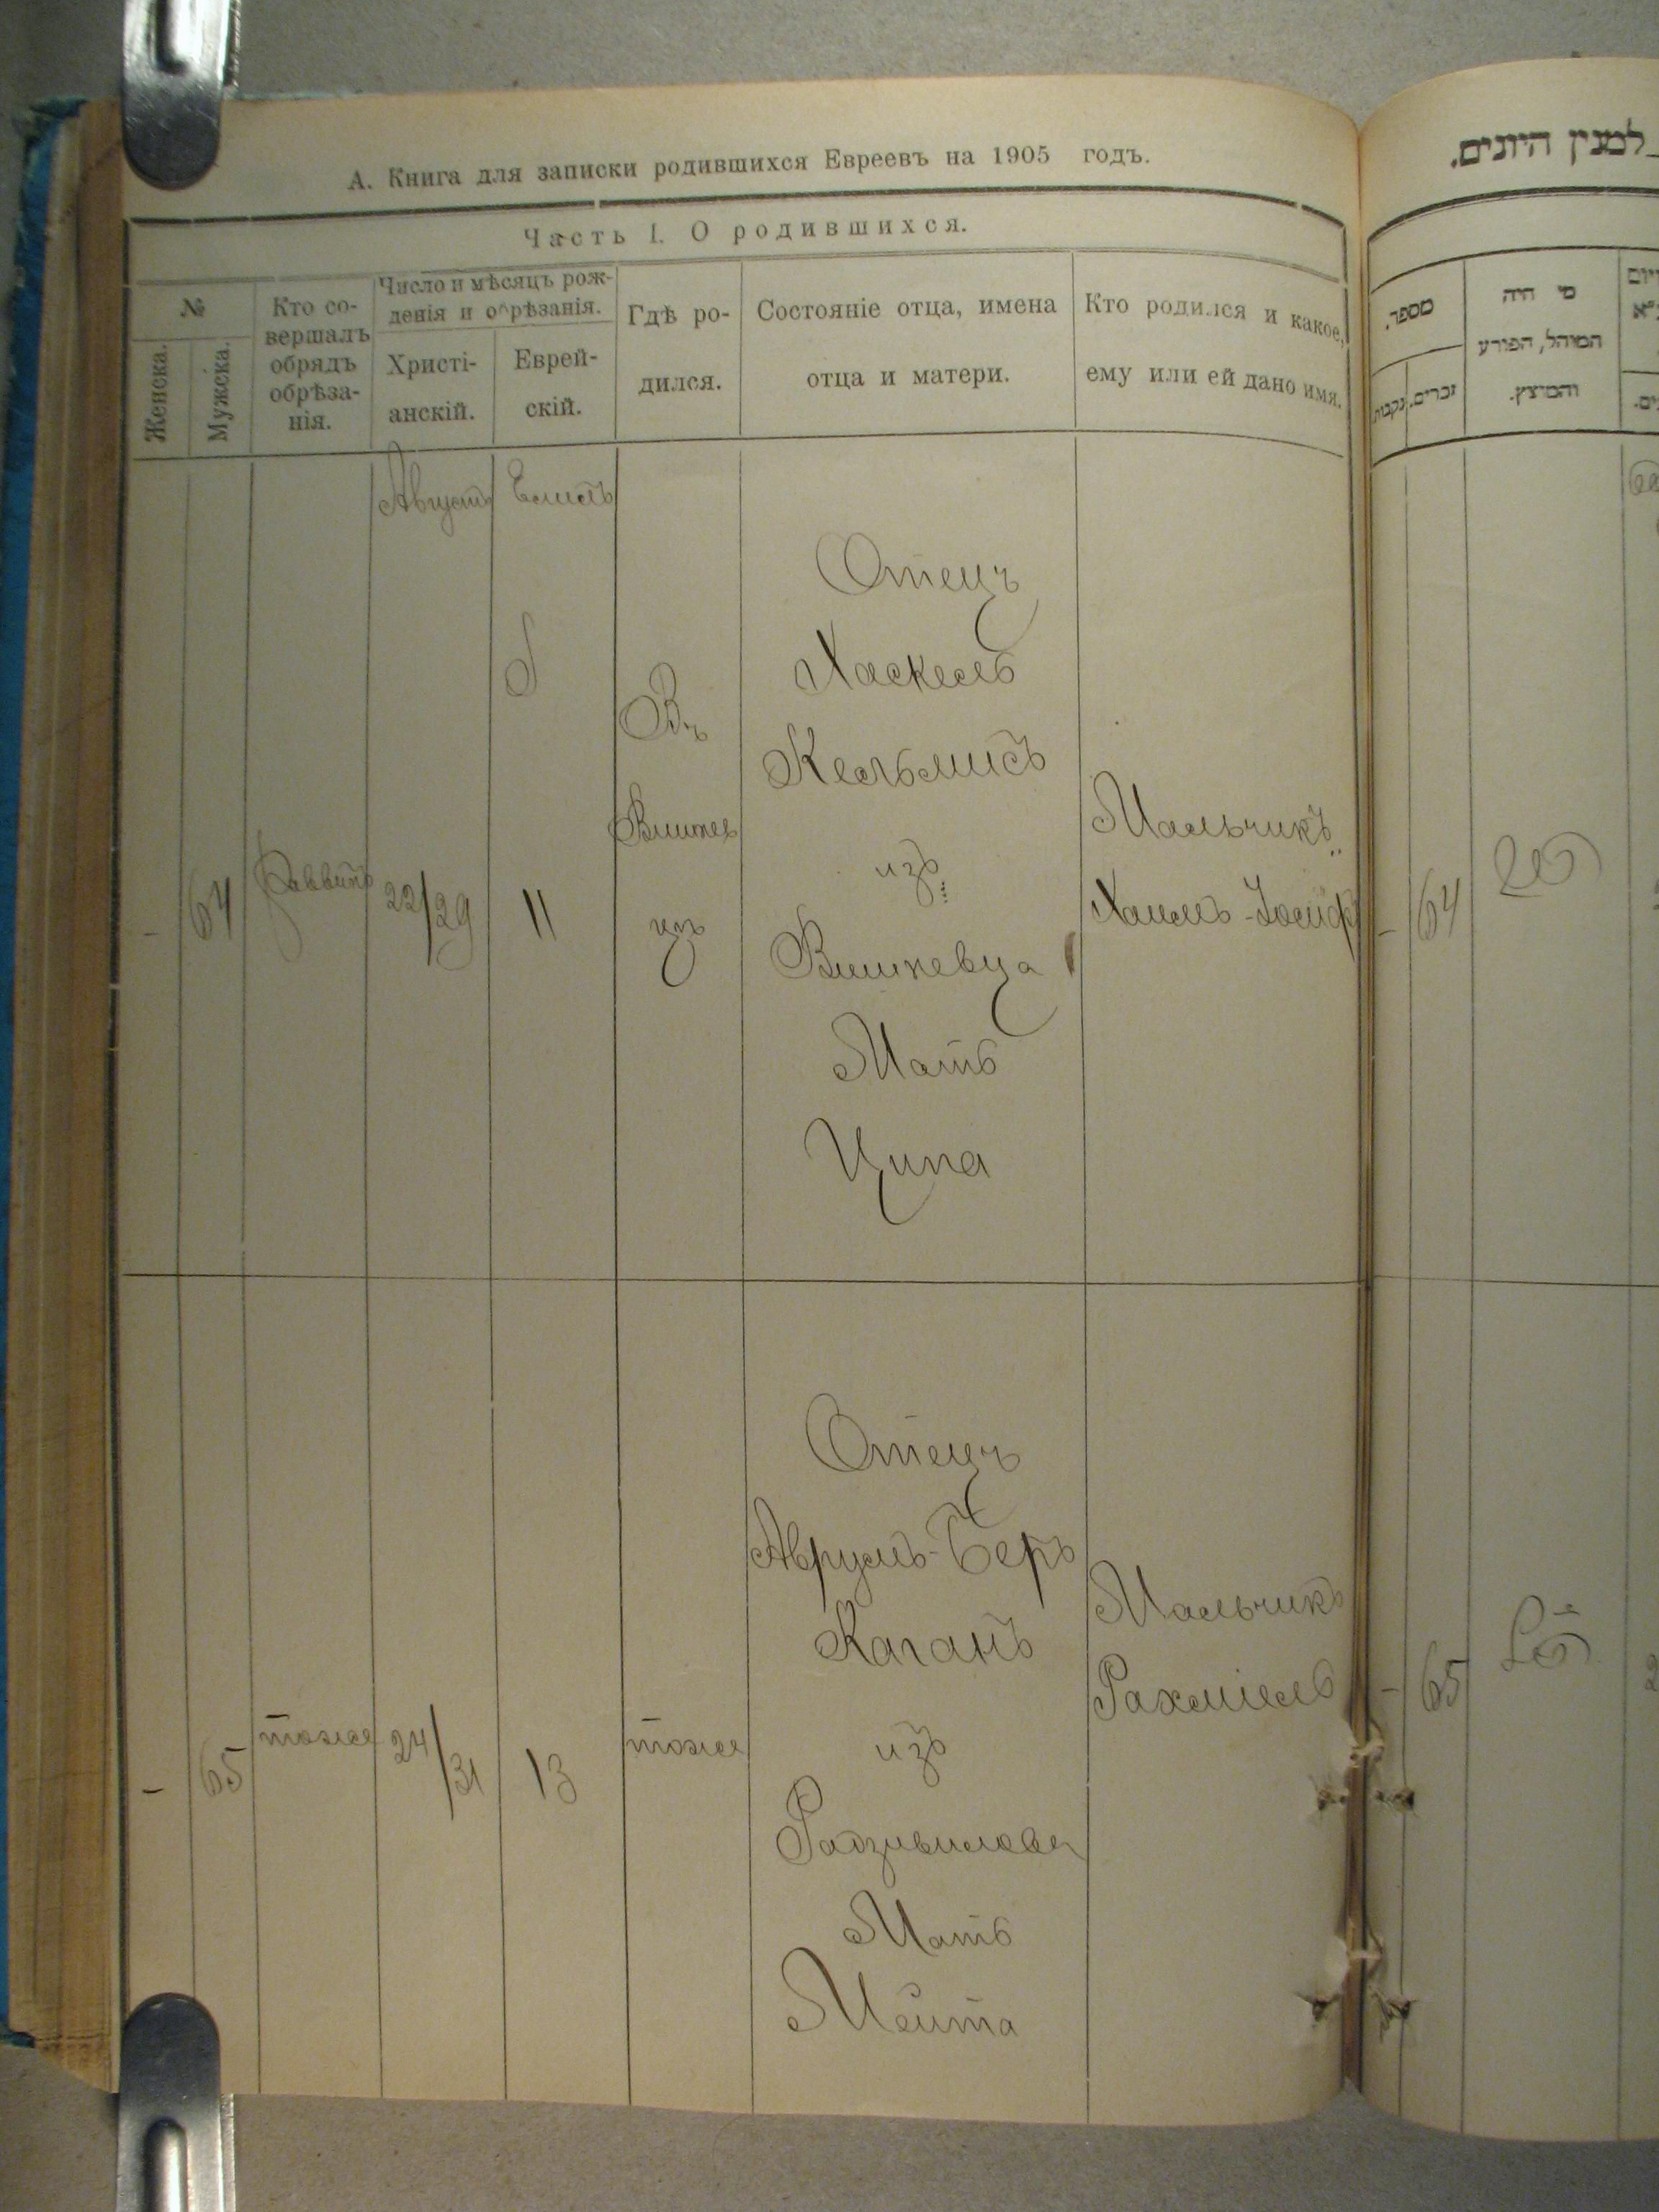 А. Книга для записки родившихся Евреевъ на 1905 годъ.
Часть I. О родившихся.
№
Женска.
Мужска.
Кто со-
вершалъ
обрядъ
обрѣза-
нія.
Число и мѣсяцъ рож-
денія и обрѣзанія.
Христі-
анскій.
Еврей-
скій.
Гдѣ ро-
дился.
Состояніе отца, имена
отца и матери.
Кто родился и какое,
ему или ей дано имя.
Августъ
-
64
Раввинъ
22/29
11
Въ
Вишнев
цѣ
Отецъ
Хаскель
Кельмисъ
изъ
Вишневца
Мать
Ципа
Мальчикъ
Хаимъ-Іосифъ
-
65
тоже
24/31
13
тоже
Отецъ
Аврумъ-Беръ
Каганъ
изъ
Радзивилова
Мать
Мейта
Мальчикъ
Рахміель
למנין היונים.
מספר.
נקבות
זכרים.
מי היה
המוהל, הפורע
והמוצץ.
-
64
-
65